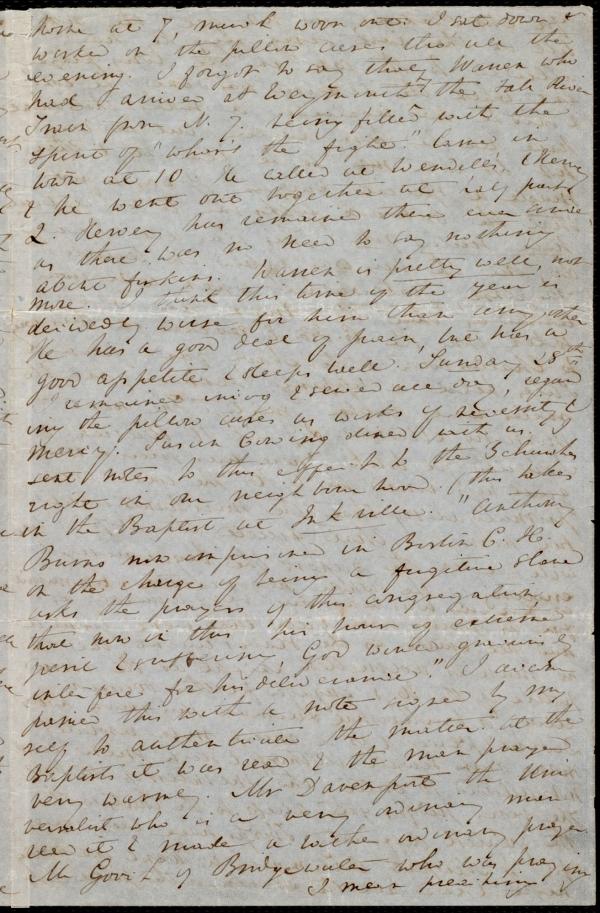 home at 7, much worn out. I sat down &
worked on the pillow cases tho all the
evening. I forgot to say that Warren who
had arrived at Weymouth by the Fall River
Train from N. Y. being filled with the
spirit of "where's the fight." Came in
town at 10 He called at Wendell's, Henry
& he went out together at half past
2. Hervey has remained there ever since
as there was no need to say nothing
about firkins. Warren is pretty well, not
more. I think this time of the year is
decidedly worse for him than any other
He has a good deal of pain, but has a
good appetite & sleeps well. Sunday 28th
I remained in & sewed all day, regard
ing the pillow cases as works of necessity &
mercy. Susan Cowing dined with us. I
sent notes to this effect to the 3 churches
right in our neighbourhood. (this takes
in the Baptist at Ink ville. "Anthony
Burns now imprisoned in Boston C. H.
on the charge of being a fugitive slave
asks the prayers of this congregation,
that now in this his hour of extreme
peril & suffering, God would graciously
interfere for his deliverance." I accom
panied this with a note signed by my
self to authenticate the matter. At the
Baptists it was read & the man prayed
very warmly. Mr Davenport the Uni
versalist who is a very ordinary man
read it & made a rather ordinary prayer
Mr of Bridgewater who was praying
I mean preaching